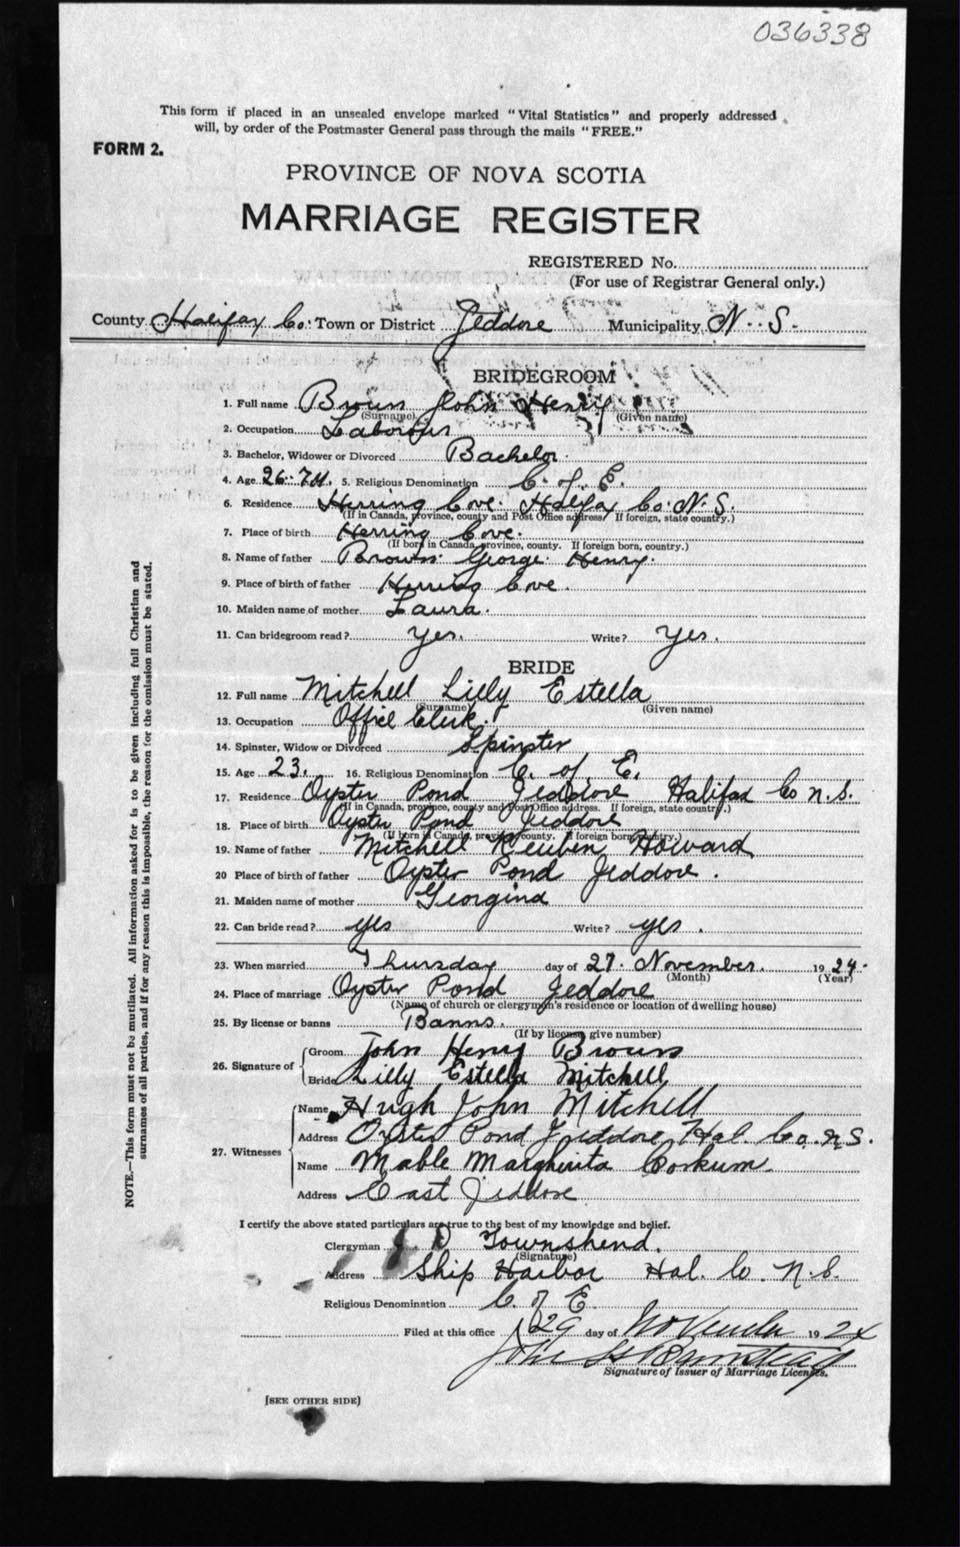 036338
This form if placed in an unsealed envelope marked "Vital Statistics" and properly addressed
will, by order of the Postmaster General pass through the mails "FREE."
FORM 2.
PROVINCE OF NOVA SCOTIA
MARRIAGE REGISTER
REGISTERED No.
(For use of Registrar General only.)
County Halifax Co. Town or District Jeddore Municipality N. S.
BRIDEGROOM
1. Full name Brown John Henry
(Surname) (Given name)
2. Occupation Laborour
3. Bachelor, Widower or Divorced Bachelor.
4. Age 26 5. Religious Denomination C. of E.
6. Residence Herring Cove Halifax Co. N. S.
(If in Canada, province, county and Post Office address. If foreign, state country.)
7. Place of birth Herring Cove.
(If born in Canada, province, county. If foreign born, country.)
8. Name of father Brown George Henry.
9. Place of birth of father Herring Cove.
10. Maiden name of mother Laura.
11. Can bridegroom read? Yes. Write? Yes.
BRIDE
12. Full name Mitchell Lilly Estella
(Surname) (Given name)
13. Occupation Office Clerk.
14. Spinster, Widow or Divorced Spinster
15. Age 23. 16. Religious Denomination C. of E.
17. Residence Oyster Pond Jeddore Halifax Co N.S.
(If in Canada, province, county and Post Office address. If foreign, state country.)
18. Place of birth Oyster Pond Jeddore
(If born in Canada, province, county. If foreign born, country.)
19. Name of father Mitchell Reuben Howard
20 Place of birth of father Oyster Pond Jeddore.
21. Maiden name of mother Georgina
22. Can bride read? yes Write? yes.
23. When married Thursday day of 27. November. 1924.
(Month) (Year)
24. Place of marriage Oyster Pond Jeddore
(Name of church or clergyman's residence or location of dwelling house)
25. By license or banns Banns.
(If by license, give number)
26. Signature of
Groom John Henry Brown
Bride Lilly Estella Mitchell
27. Witnesses
Name Hugh John Mitchell
Address Oyster Pond Jeddore, Hal. Co. N.S.
Name Mable Margherita Corkum
Address East Jeddore
I certify the above stated particulars are true to the best of my knowledge and belief.
Clergyman D Townshend.
(Signature)
Address Ship Harbor Hal. Co. N.S.
Religious Denomination C. of E.
Filed at this office 29 day of November 1924
Signature of Issuer of Marriage Licenses.
[SEE OTHER SIDE]
NOTE.—This form must not be mutilated. All information asked for is to be given including full Christian and
surnames of all parties, and if for any reason this is impossible, the reason for the omission must be stated.